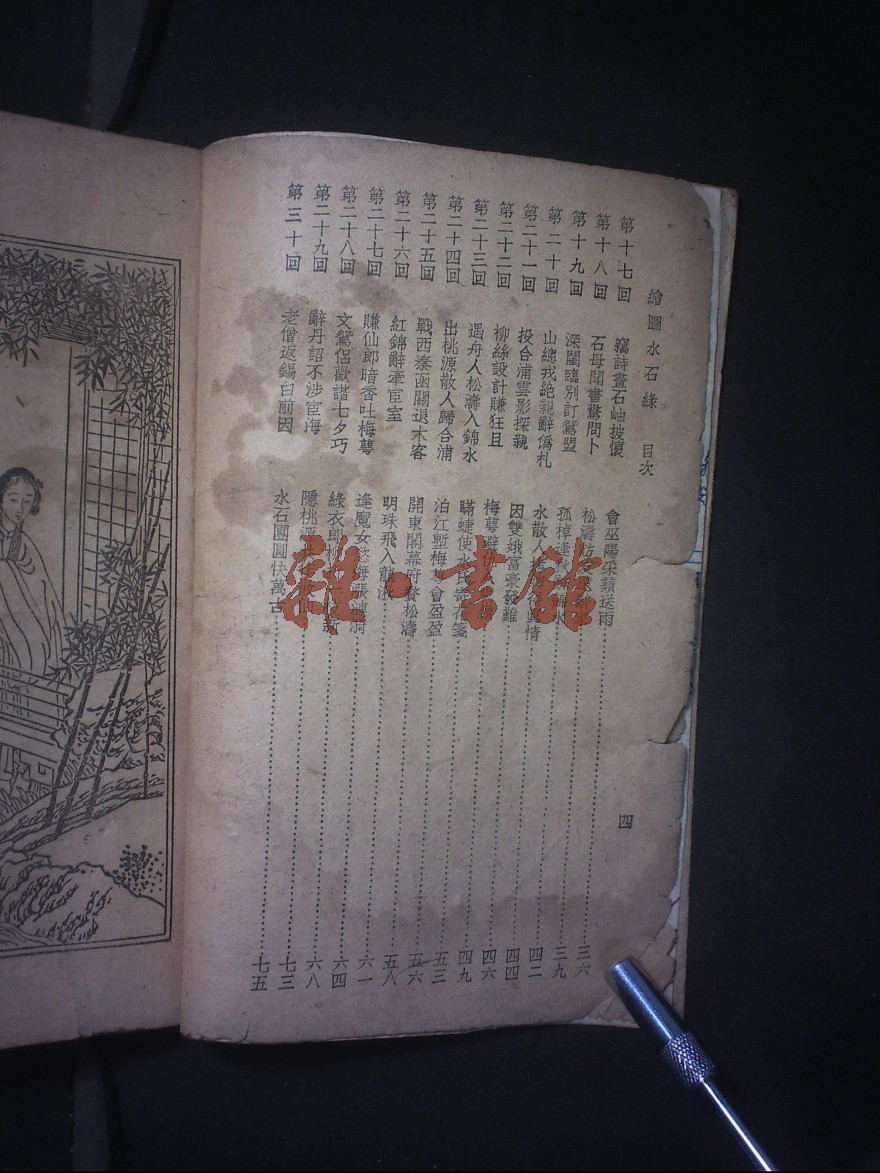 繪圖水石緣 目次
四
第十七回 竊詩畫石岫披懷 會巫陽采蘋送雨 三六
第十八回 石母聞書驚問卜 松濤
第十九回 深閨臨別訂鴛盟 孤棹逢 水 三九
第二十回 山總戎絶親辭僞札 水散人 情 四二
第二十一回 投合浦雲影探親 因雙娥富豪發難 四四
第二十二回 柳絲設計賺狂且 梅萼 四六
第二十三回 遇舟人松濤入錦水 瞞蜨使水氏寄花箋 四九
第二十四回 出桃源散人歸合浦 泊江塹梅 會盈盈 五三
第二十五回 戰西秦函關退木客 開東閣幕府贅松濤 五六
第二十六回 紅錦辭牽宦室 明珠飛入龍 五八
第二十七回 賺仙郎暗香吐梅萼 逢魔女慾海漲漣漪 六一
第二十八回 文鴛侶歡諧七夕巧 綠衣郎 六四
第二十九回 辭丹詔不涉宦海 隱桃源 六八
第三十回 老僧返錫白前因 水石團圓快萬古 七三
七五
雜·書館